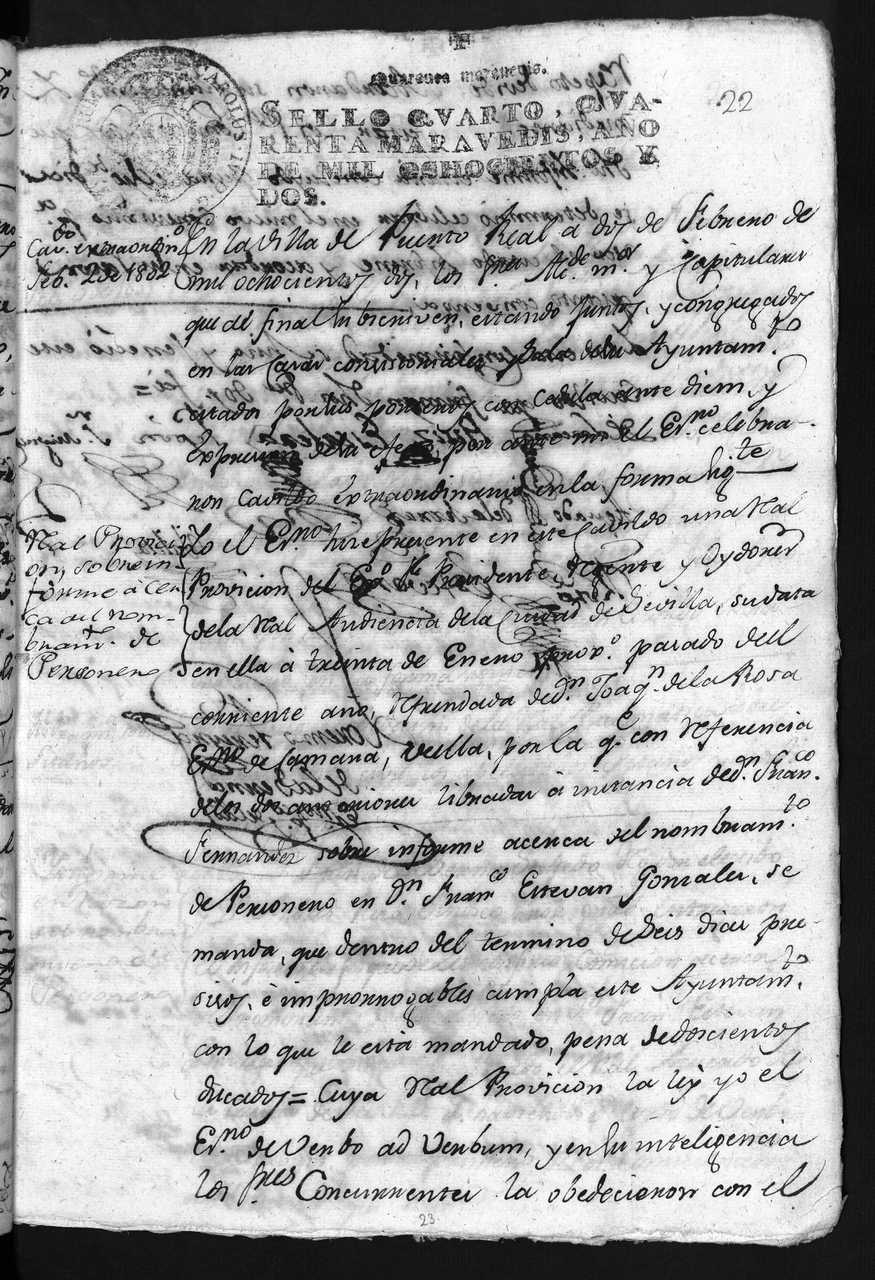 Quarenta maravedis.
SELLO QVARTO, QVA-
RENTA MARAVEDIS, AÑO
DE MIL OCHOCIENTOS Y
DOS.
22
CAROLUS IV
Cav.do extraordin.o
Feb.o 2 de 1802
En la villa de Puerto Real a dos de Febrero de
mil ochocientos dos, los S.res Alc.de m.or y Capitulares
que al final subscriven, estando juntos, y congregados
en las Casas consistoriales de su Ayuntam.to
citados por sus porteros con cedula ante diem, y
expresion de la efecto, por ante mi el Es.no celebra-
ron cavildo extraordinario en la forma sig.te
Real Provici
on, sobre in
forme à cer
ca del nom-
bram.to de
Personero
Yo el Es.no hize presente en este Cavildo una Rl
Provicion del Ex.o S.r Presidente, Regente y Oydores
de la Rl Audiencia de la Ciudad de Sevilla, su data
en ella à treinta de Enero pasado del
corriente año, refrendada de d.n Joaq.n de la Rosa
Es.no de Camara, de ella, por la q.e con referencia
de las dos anteriores libradas à instancia de d.n Fran.co
Fernandez sobre informe acerca del nombram.to
de Personero en d.n Fran.co Estevan Gonzales, se
manda, que dentro del termino de seis dias pre-
sisos, è improrrogables cumpla este Ayuntam.to
con lo que le està mandado, pena de doscientos
ducados = Cuya Rl Provicion la leý yo el
Es.no de Verbo ad Verbum, y en su inteligencia
los S.res Concurrentes la obedecieron con el
23